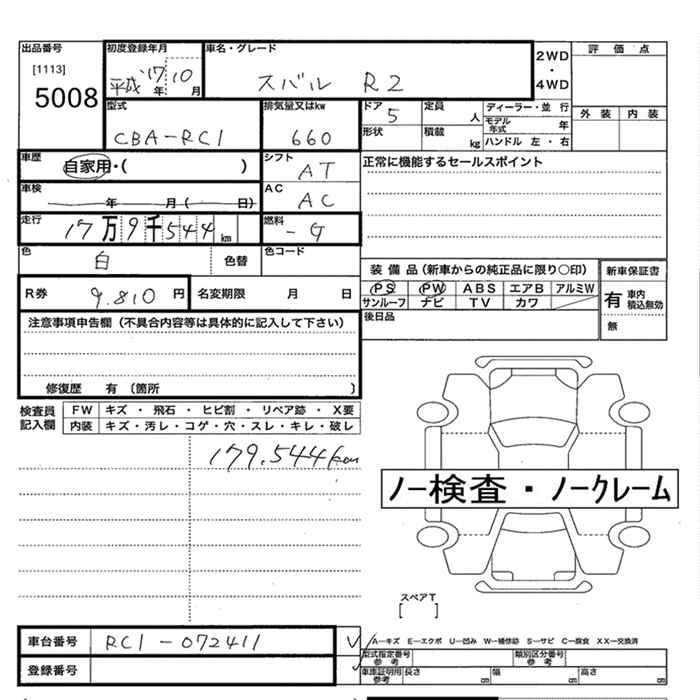 出品番号 初度登録年月 車名・グレード 2WD ・ 4WD 評価点
[1113]
5008
平成'17年10月 スバル R2
型式 排気量又はkw ドア 定員 ディーラー・並行 外装 内装
CBA-RC1 660 5 人 モデル年式 年
形状 積載 kg ハンドル 左・右
車歴 自家用・( ) シフト AT 正常に機能するセールスポイント
車検 年 月( 日) AC AC
走行 17万9千544km 燃料 -G
色 白 色替 色コード
装備品(新車からの純正品に限り〇印) 新車保証書
R券 9.810円 名変期限 月 日 PS PW ABS エアB アルミW 有 車内積込無効
サンルーフ ナビ TV カワ 無
注意事項申告欄(不具合内容等は具体的に記入して下さい) 後日品
修復歴 有 〔箇所 〕
検査員記入欄 FW キズ・飛石・ヒビ割・リペア跡・X要
内装 キズ・汚レ・コゲ・穴・スレ・キレ・破レ
179.544km
ノー検査・ノークレーム
スペアT
[ ]
車台番号 RC1-072411 A―キズ E―エクボ U―凹み W―補修跡 S―サビ C―腐食 XX―交換済
登録番号 型式指定番号 参考 類別区分番号 参考
車庫証明用 参考 長さ cm 幅 cm 高さ cm